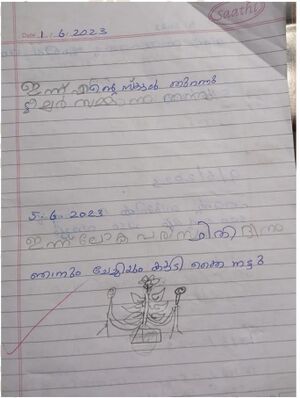 Saathi
Date 1.6.2023
ഇന്ന് എന്റെ സ്കൂൾ തുറന്നു
ടീച്ചർ സമ്മാനം തന്നു
5.6.2023
ഇന്ന് ലോക പരിസ്ഥിതി ദിനം
ഞാനും ചേച്ചിയും കൂടി തൈ നട്ടു